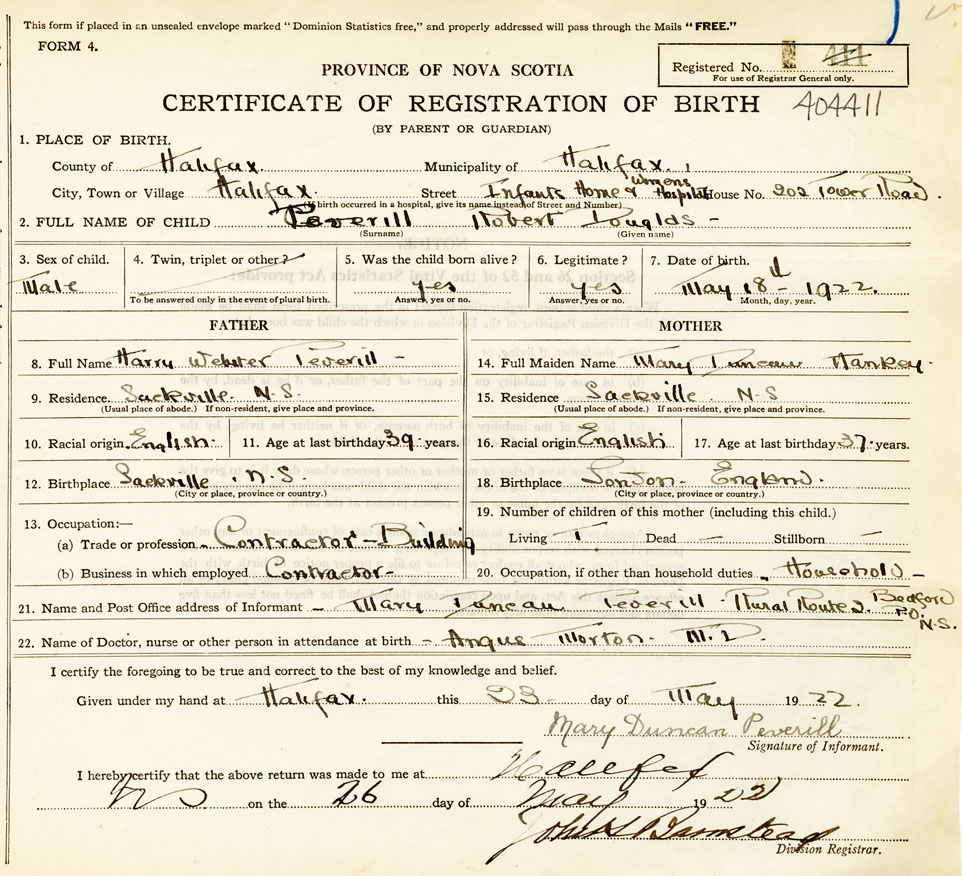 This form if placed in an unsealed envelope marked "Dominion Statistics free," and properly addressed will pass through the Mails "FREE."
FORM 4.
Registered No. 411
For use of Registrar General only.
PROVINCE OF NOVA SCOTIA
CERTIFICATE OF REGISTRATION OF BIRTH 404411
(BY PARENT OR GUARDIAN)
1. PLACE OF BIRTH.
County of Halifax. Municipality of Halifax.
City, Town or Village Halifax. Street Infants Home & Womens Hospital House No. 202 Tower Road.
(If birth occurred in a hospital, give its name instead of Street and Number)
2. FULL NAME OF CHILD Peverill Robert Douglas -
(Surname) (Given name)
3. Sex of child. 4. Twin, triplet or other? 5. Was the child born alive? 6. Legitimate? 7. Date of birth.
Male yes yes May 18th - 1922.
To be answered only in the event of plural birth. Answer, yes or no. Answer, yes or no. Month, day, year.
FATHER MOTHER
8. Full Name Harry Webster Peverill - 14. Full Maiden Name Mary Duncan Hankey.
9. Residence. Sackville. N.S. 15. Residence Sackville. N.S
(Usual place of abode.) If non-resident, give place and province. (Usual place of abode.) If non-resident, give place and province.
10. Racial origin. English. 11. Age at last birthday 39. years. 16. Racial origin English 17. Age at last birthday 37. years.
12. Birthplace Sackville. N.S. 18. Birthplace London - England.
(City or place, province or country.) (City or place, province or country.)
13. Occupation:— 19. Number of children of this mother (including this child.)
(a) Trade or profession. Contractor - Building Living 1 Dead — Stillborn —
(b) Business in which employed Contractor - 20. Occupation, if other than household duties - Household -
21. Name and Post Office address of Informant - Mary Duncan Peverill - Rural Route 2. Bedford P.O. N.S.
22. Name of Doctor, nurse or other person in attendance at birth - Angus Morton - M.D.
I certify the foregoing to be true and correct to the best of my knowledge and belief.
Given under my hand at Halifax. this 23 day of May 1922.
Mary Duncan Peverill
Signature of Informant.
I hereby certify that the above return was made to me at Halifax
NS on the 26 day of May 1922
Division Registrar.